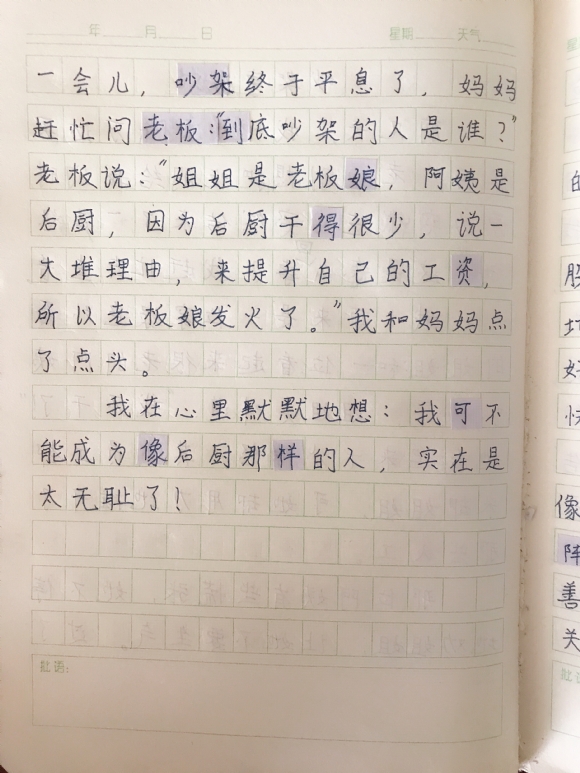 年 月 日 星期 天气
一会儿，吵架终于平息了，妈妈
赶忙问老板：“到底吵架的人是谁？”
老板说：“姐姐是老板娘，阿姨是
后厨，因为后厨干得很少，说一
大堆理由，来提升自己的工资，
所以老板娘发火了。”我和妈妈点
了点头。
我在心里默默地想：我可不
能成为像后厨那样的人，实在是
太无耻了！
批语：
的
股
好
快
像
阵
善
关
批语